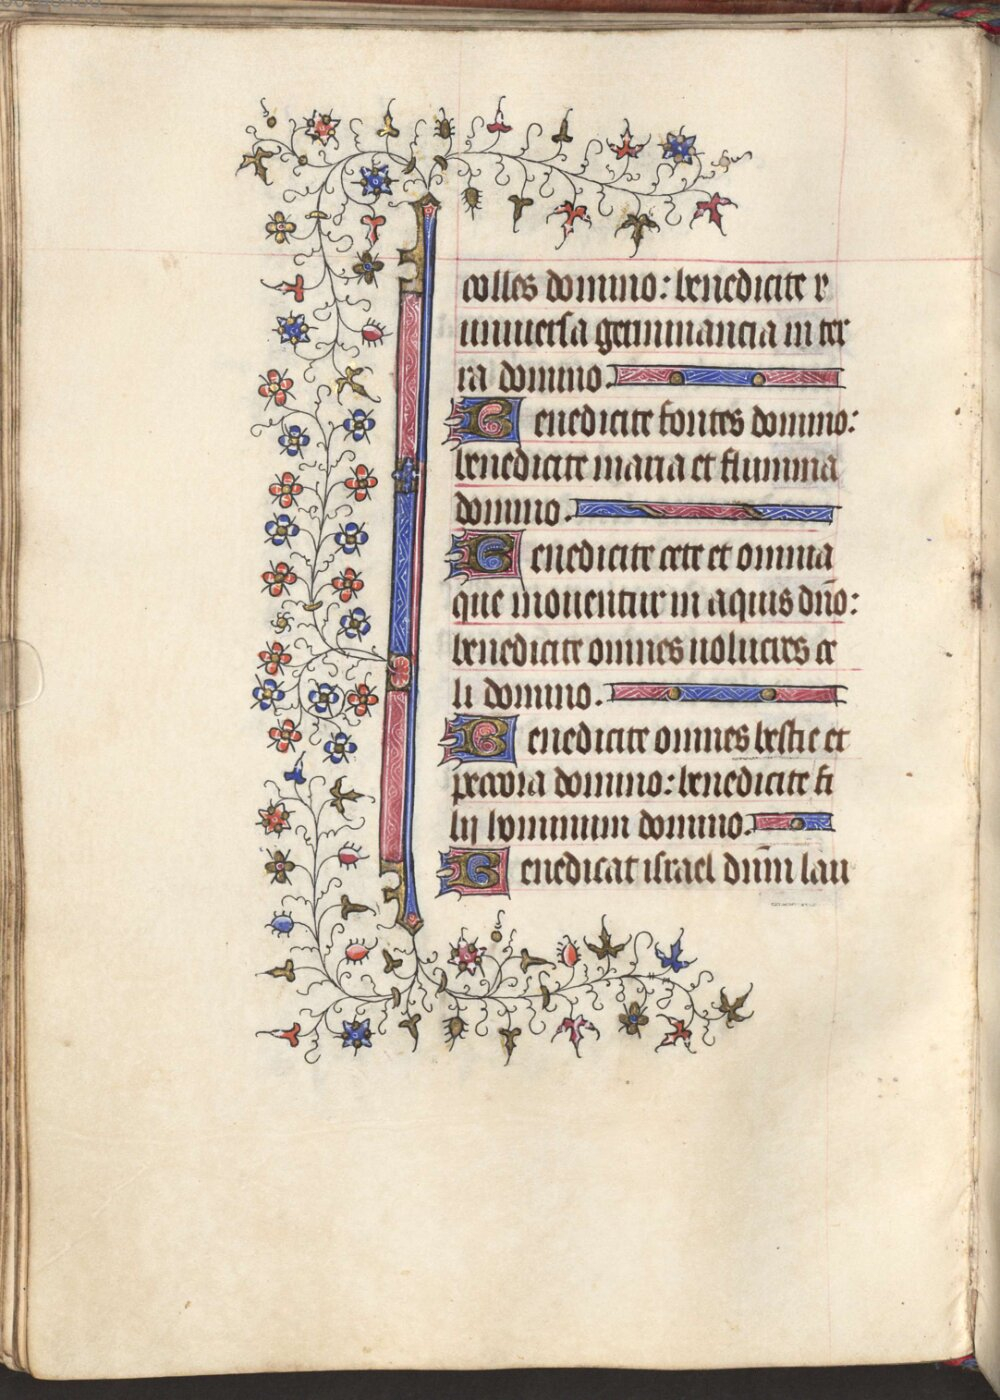 colles domino: benedicite
uniuersa germinancia in ter
ra domino.
Benedicite fontes domino:
benedicite maria et flumina
domino.
Benedicite cete et omnia
que mouentur in aquis dn̄o:
benedicite omnes uolucres ce
li domino.
Benedicite omnes bestie et
pecora domino: benedicite fi
lij hominum domino.
Benedicat israel dn̄m lau